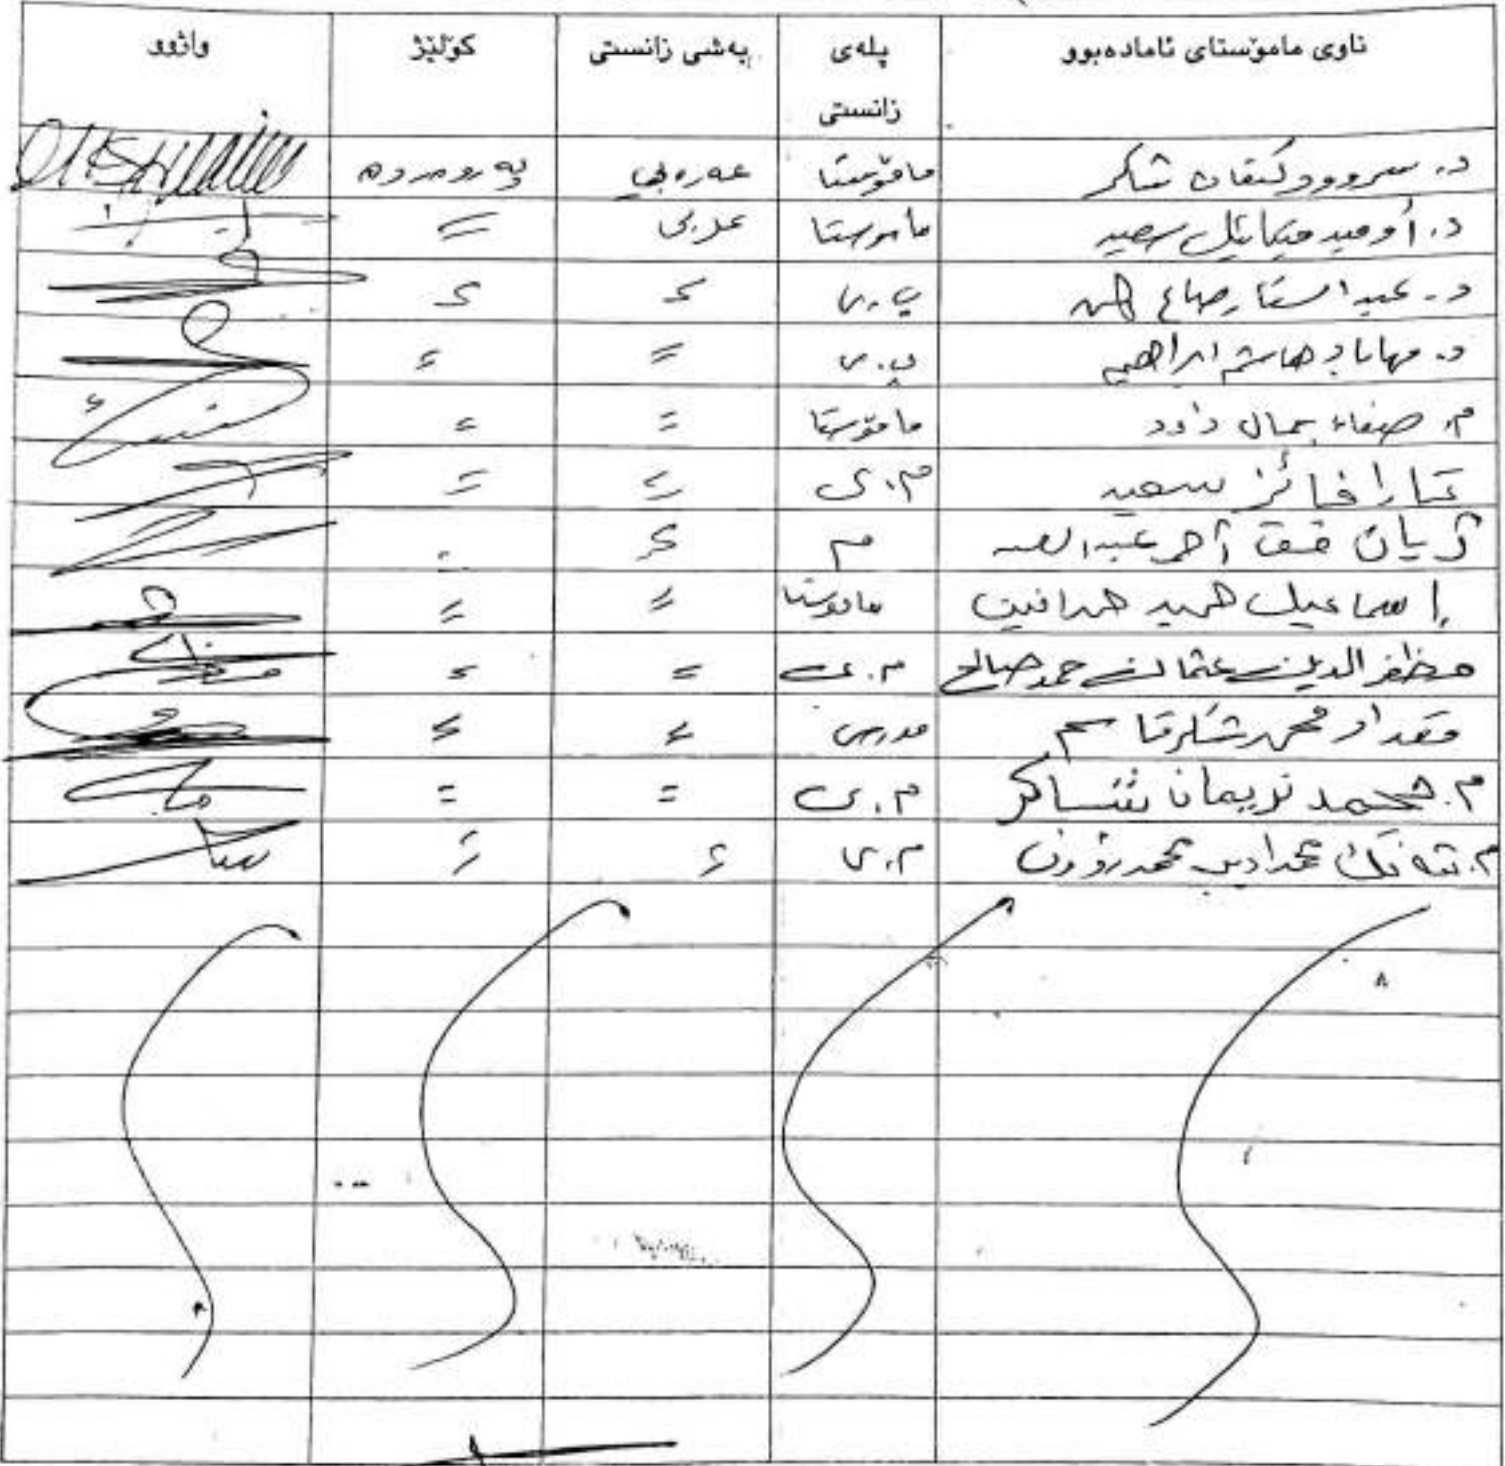 ناوی مامۆستای ئامادەبوو پلەی زانستی بەشی زانستی کۆلێژ واژوو
د. سروود کنعان شاکر مامۆستا عەرەبی پەروەردە
د. أوميد ميكائيل سعيد ماموستا عربی =
د. عبدالستار صالح پ.ی = =
د. مهاباد هاشم ابراهيم پ.ی = =
م. صفاء جمال داود مامۆستا = =
تارا فائز سعيد م.ی = =
ژيان أحمد عبدالله م =
إسماعيل حميد حمدأمين مامۆستا = =
مظفرالدين عثمان حمدصالح م.ی = =
مقداد محمد شكر قاسم مدرس = =
م. محمد نريمان شاكر م.ی = =
م. محمد محمد رؤوف م.ی = =